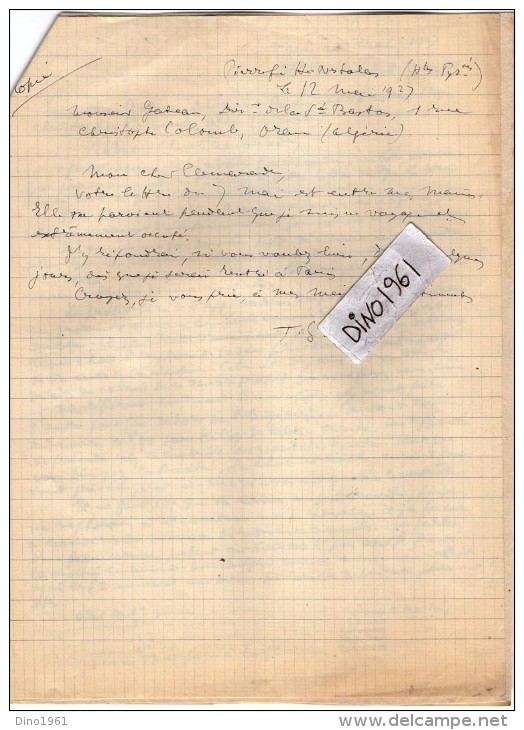 copie
Pierrefitte Nestalas (Htes Pyrées)
Le 12 mai 1927
Monsieur Gateau, Dir. de la Sté Bastos, 1 rue
Christophe Colomb, Oran (Algérie)
Mon cher Camarade,
Votre lettre du 7 mai est entre mes mains.
Elle me parvient pendant que je suis en voyage et
extrêmement occupé.
J'y répondrai, si vous voulez bien, jours, dès que je serai rentré à Paris
Croyez, je vous prie, à mes
DiNO1961
Dino1961
delcampe.net